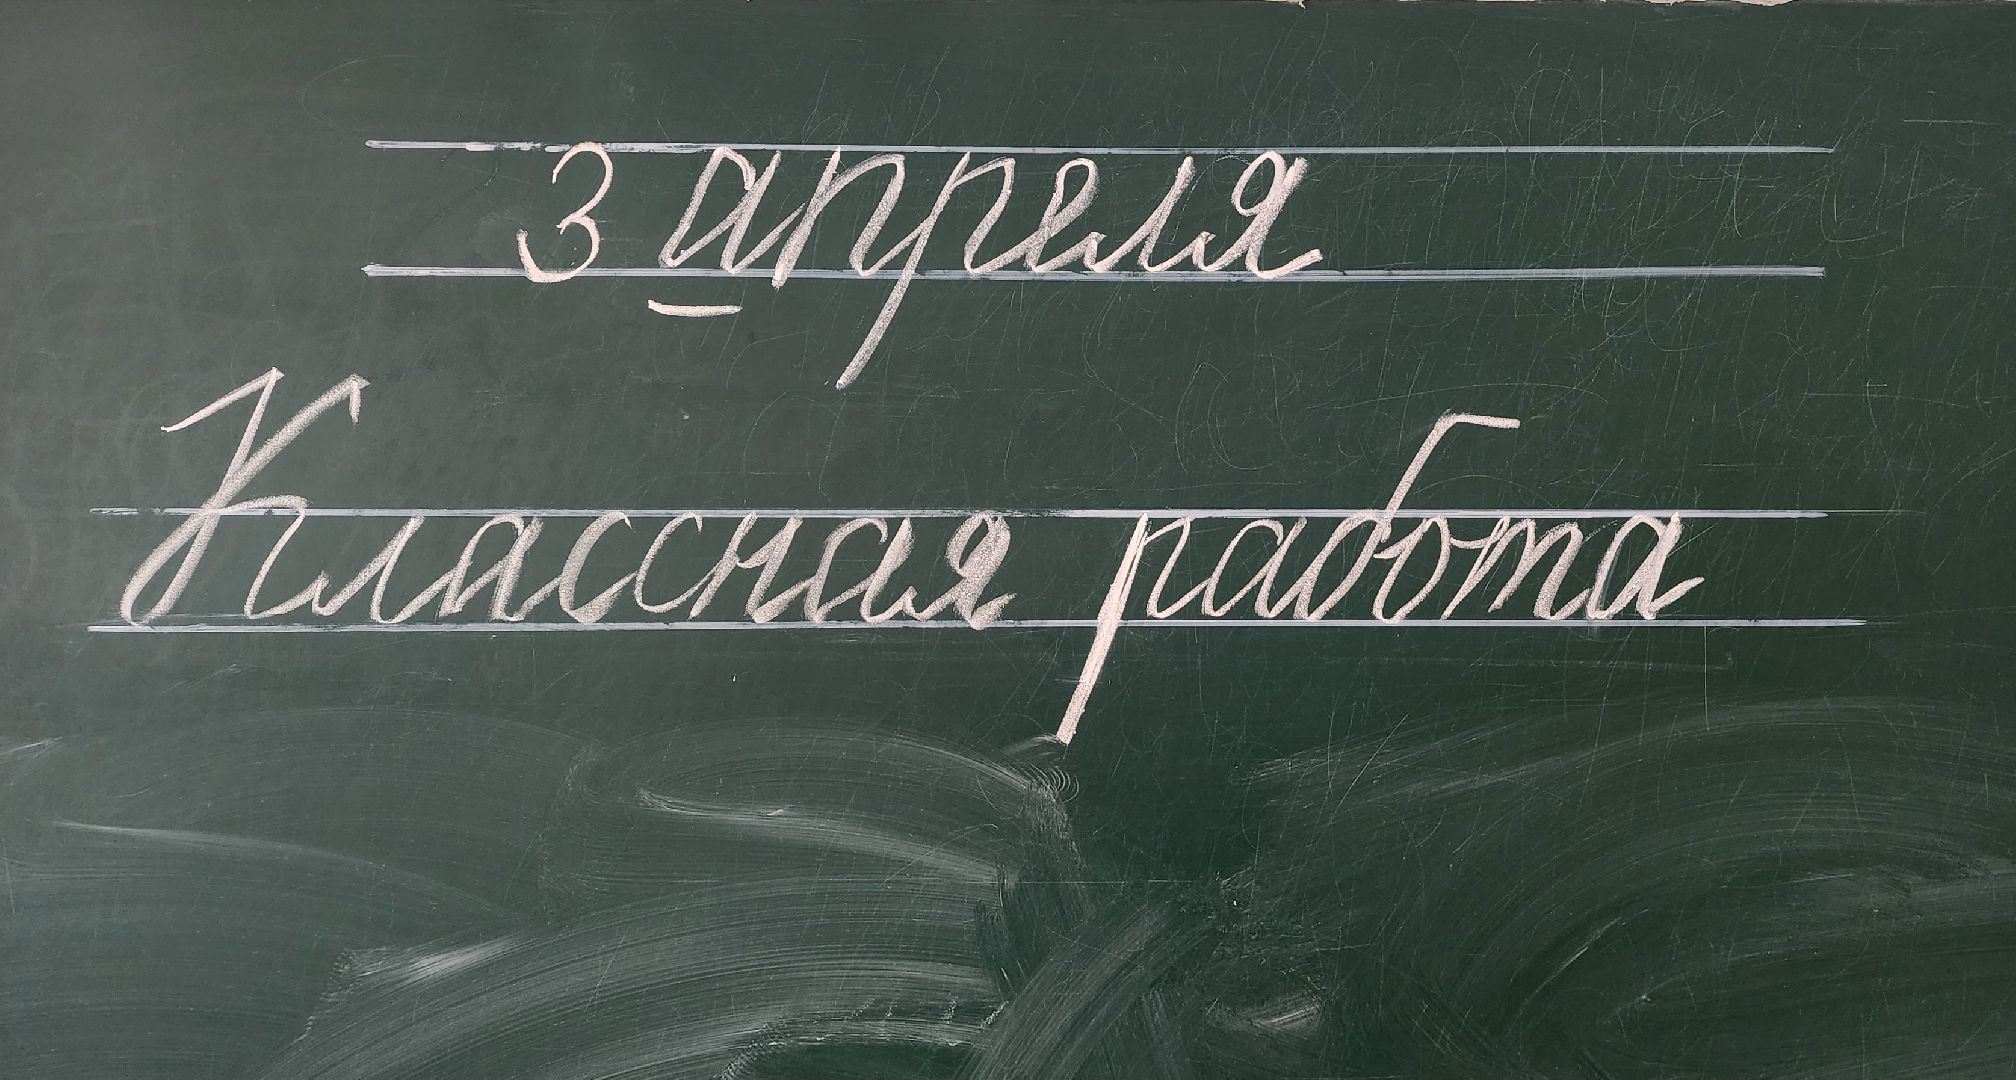 3 апреля
Классная работа